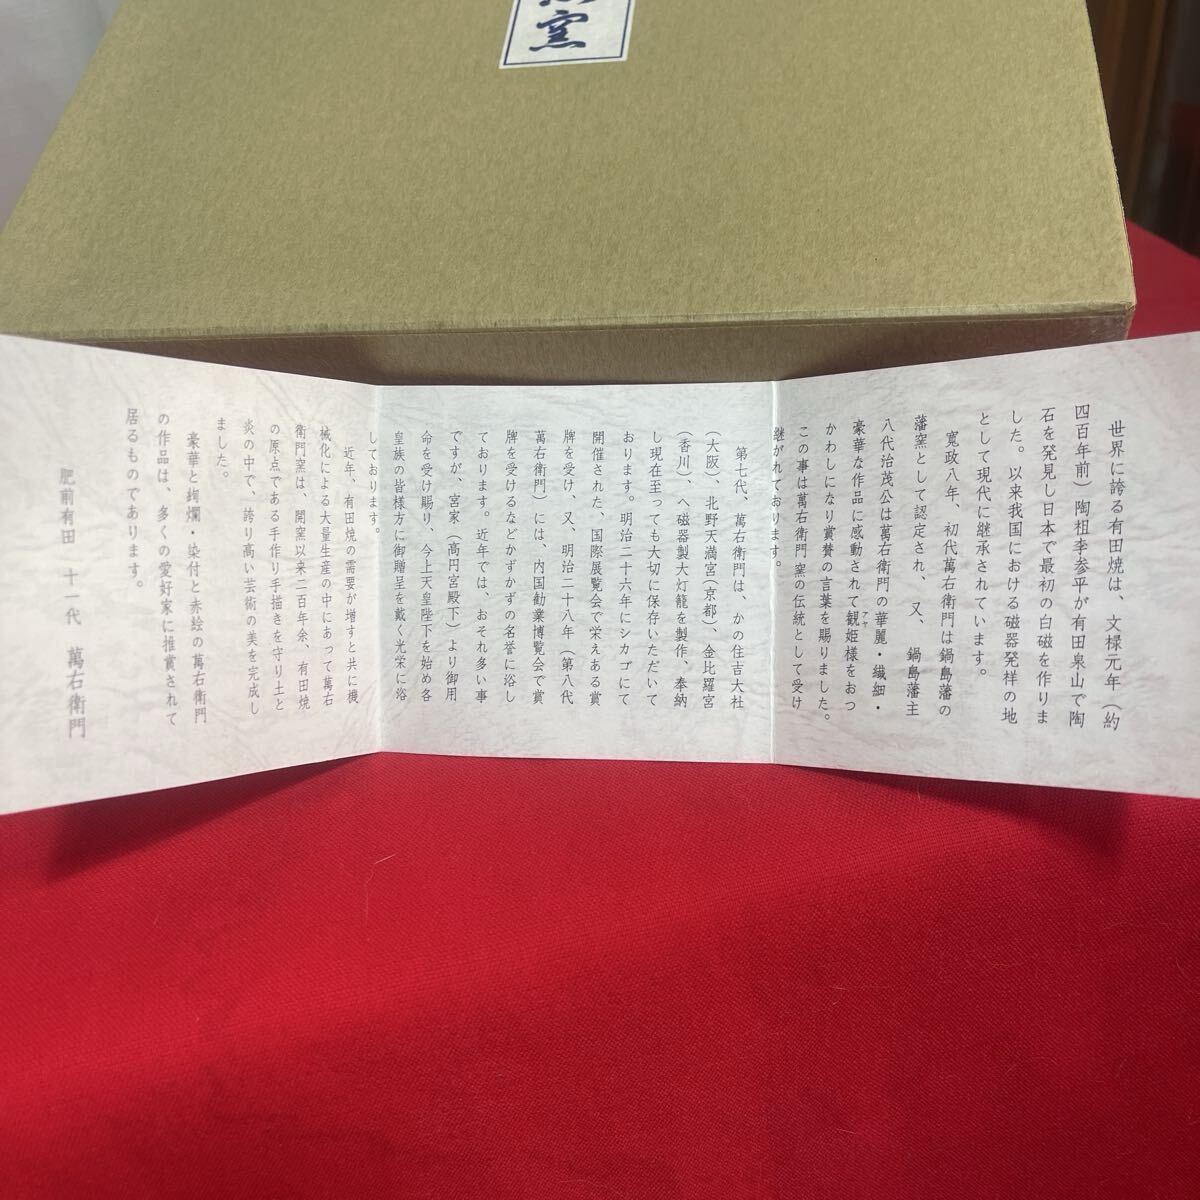 窯
世界に誇る有田焼は、文禄元年（約
四百年前）陶祖李参平が有田泉山で陶
石を発見し日本で最初の白磁を作りま
した。以来我国における磁器発祥の地
として現代に継承されています。
寛政八年、初代萬右衛門は鍋島藩の
藩窯として認定され、又、鍋島藩主
八代治茂公は萬右衛門の華麗・繊細・
豪華な作品に感動されて観姫様をおつ
かわしになり賞賛の言葉を賜りました。
この事は萬右衛門窯の伝統として受け
継がれております。
第七代、萬右衛門は、かの住吉大社
（大阪）、北野天満宮（京都）、金比羅宮
（香川）、へ磁器製大灯籠を製作、奉納
し現在至っても大切に保存いただいて
おります。明治二十六年にシカゴにて
開催された、国際展覧会で栄えある賞
牌を受け、又、明治二十八年（第八代
萬右衛門）には、内国勧業博覧会で賞
牌を受けるなどかずかずの名誉に浴し
ております。近年では、おそれ多い事
ですが、宮家（高円宮殿下）より御用
命を受け賜り、今上天皇陛下を始め各
皇族の皆様方に御贈呈を戴く光栄に浴
しております。
近年、有田焼の需要が増すと共に機
械化による大量生産の中にあって萬右
衛門窯は、開窯以来二百年余、有田焼
の原点である手作り手描きを守り土と
炎の中で、誇り高い芸術の美を完成し
ました。
豪華と絢爛・染付と赤絵の萬右衛門
の作品は、多くの愛好家に推賞されて
居るものであります。
肥前有田 十一代 萬右衛門